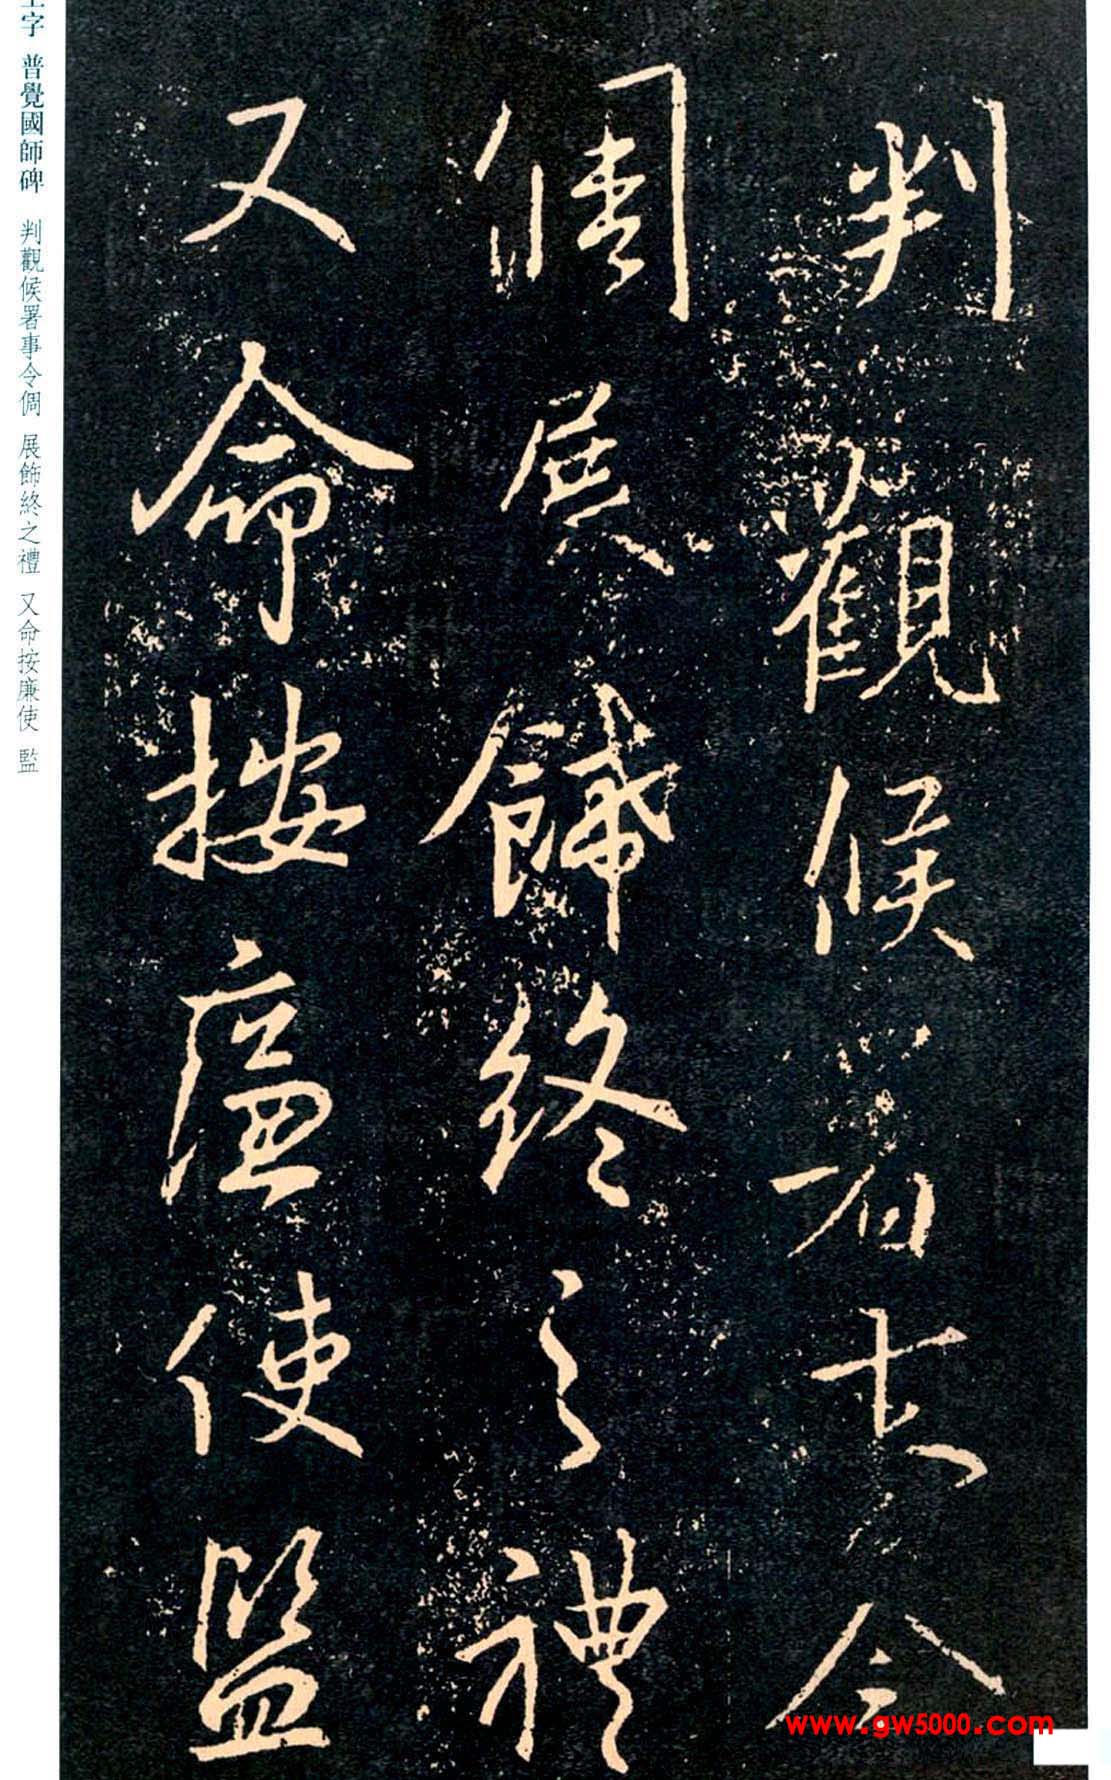 判觀候署事令
倜展飾終之禮
又命按廉使監
字 普覺國師碑 判觀候署事令倜 展飾終之禮 又命按廉使 監
www.gw5000.com